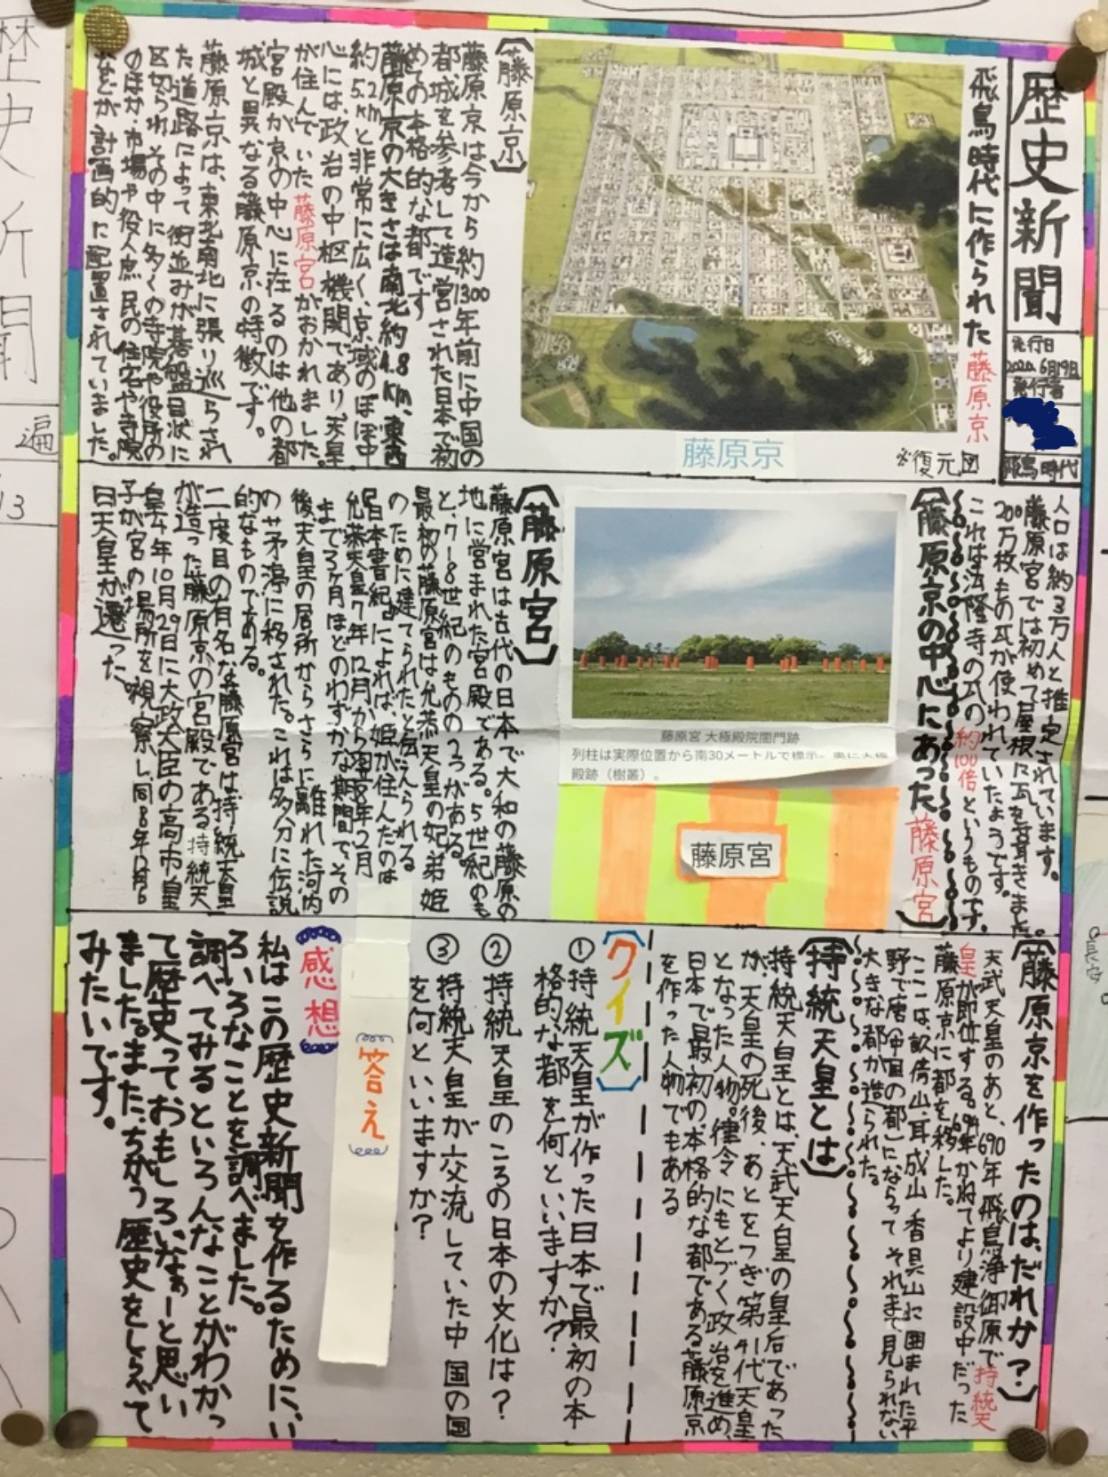 歴史新聞
発行日
2020.6月19日
発行者
飛鳥時代
飛鳥時代に作られた藤原京
藤原京
※復元図
【藤原京】
藤原京は今から約1300年前に中国の
都城を参考して造営された日本で初
めての本格的な都です
藤原京の大きさは南北約4.8km、東西
約5.2kmと非常に広く、京域のほぼ中
心には政治の中枢機関であり天皇
が住んでいた藤原宮がおかれました。
宮殿が京の中心に在るのは他の都
城と異なる藤原京の特徴です。
藤原京は、東北南北に張り巡らされ
た道路によって街並みが碁盤目状に
区切られその中に多くの寺院や役所の
のほか、市場や役人庶民の住宅や寺院
などが計画的に配置されていました。
人口は約3万人と推定されています。
藤原宮では初めて屋根に瓦を葺きました。
200万枚もの瓦が使われていたようです。
これは法隆寺の瓦の約100倍というものです。
【藤原京の中心にあった藤原宮】
藤原宮 大極殿院閤門跡
列柱は実際位置から南30メートルで標示。奥に大極
殿跡（樹叢）。
藤原宮
【藤原宮】
藤原宮は古代の日本で大和の藤原の
地に営まれた宮殿である。5世紀のも
と、7-8世紀のものの2つがある。
最初の藤原宮は允恭天皇の妃弟姫
のために建てられたと伝えられる
『日本書紀』によれば、姫が住んだのは
允恭天皇7年12月から翌8年2月
まで3ヶ月ほどのわずかな期間で、その
後天皇の居所からさらに離れた河内
の茅渟に移された。これは多分に伝説
的なものである。
二度目の有名な藤原宮は持統天皇
が造った藤原京の宮殿である 持統天
皇4年10月29日に大政大臣の高市皇
子が宮の場所を視察し、同8年12月6
日天皇が遷った。
【藤原京を作ったのは、だれか?】
天武天皇のあと、690年飛鳥浄御原で持統天
皇が即位する。694年かねてより建設中だった
藤原京に都を移した。
ここは、畝傍山、耳成山 香具山に囲まれた平
野で唐(中国の都)にならって それまで見られない
大きな都が造られた。
【持統天皇とは】
持統天皇とは、天武天皇の皇后であった
が、天皇の死後、あとをつぎ第41代天皇
となった人物。律令にもとづく政治を進め、
日本で最初の本格的な都である藤原京
を作った人物でもある
【クイズ】
① 持統天皇が作った日本で最初の本
格的な都を何といいますか?
② 持統天皇のころの日本の文化は?
③ 持統天皇が交流していた中国の国
を何といいますか?
答え
【感想】
私はこの歴史新聞を作るために、い
ろいろなことを調べました。
調べてみるといろんなことがわかっ
て歴史っておもしろいなぁーと思い
ました。また、ちがう歴史をしらべて
みたいです。